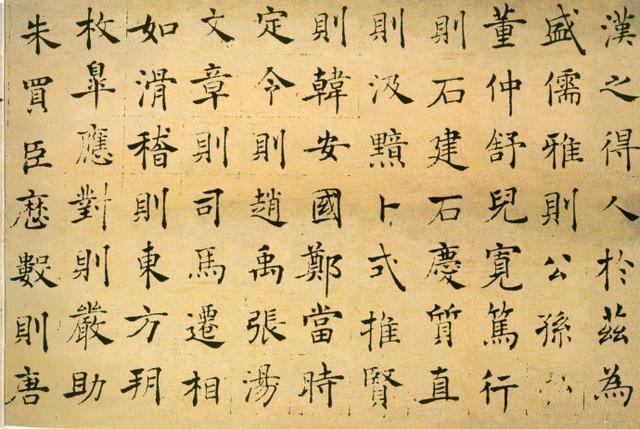 漢之得人於茲為
盛儒雅則公孫
董仲舒兒寬篤行
則石建石慶質直
則汲黯卜式推賢
則韓安國鄭當時
定令則趙禹張湯
文章則司馬遷相
如滑稽則東方朔
枚皐應對則嚴助
朱買臣歷數則唐